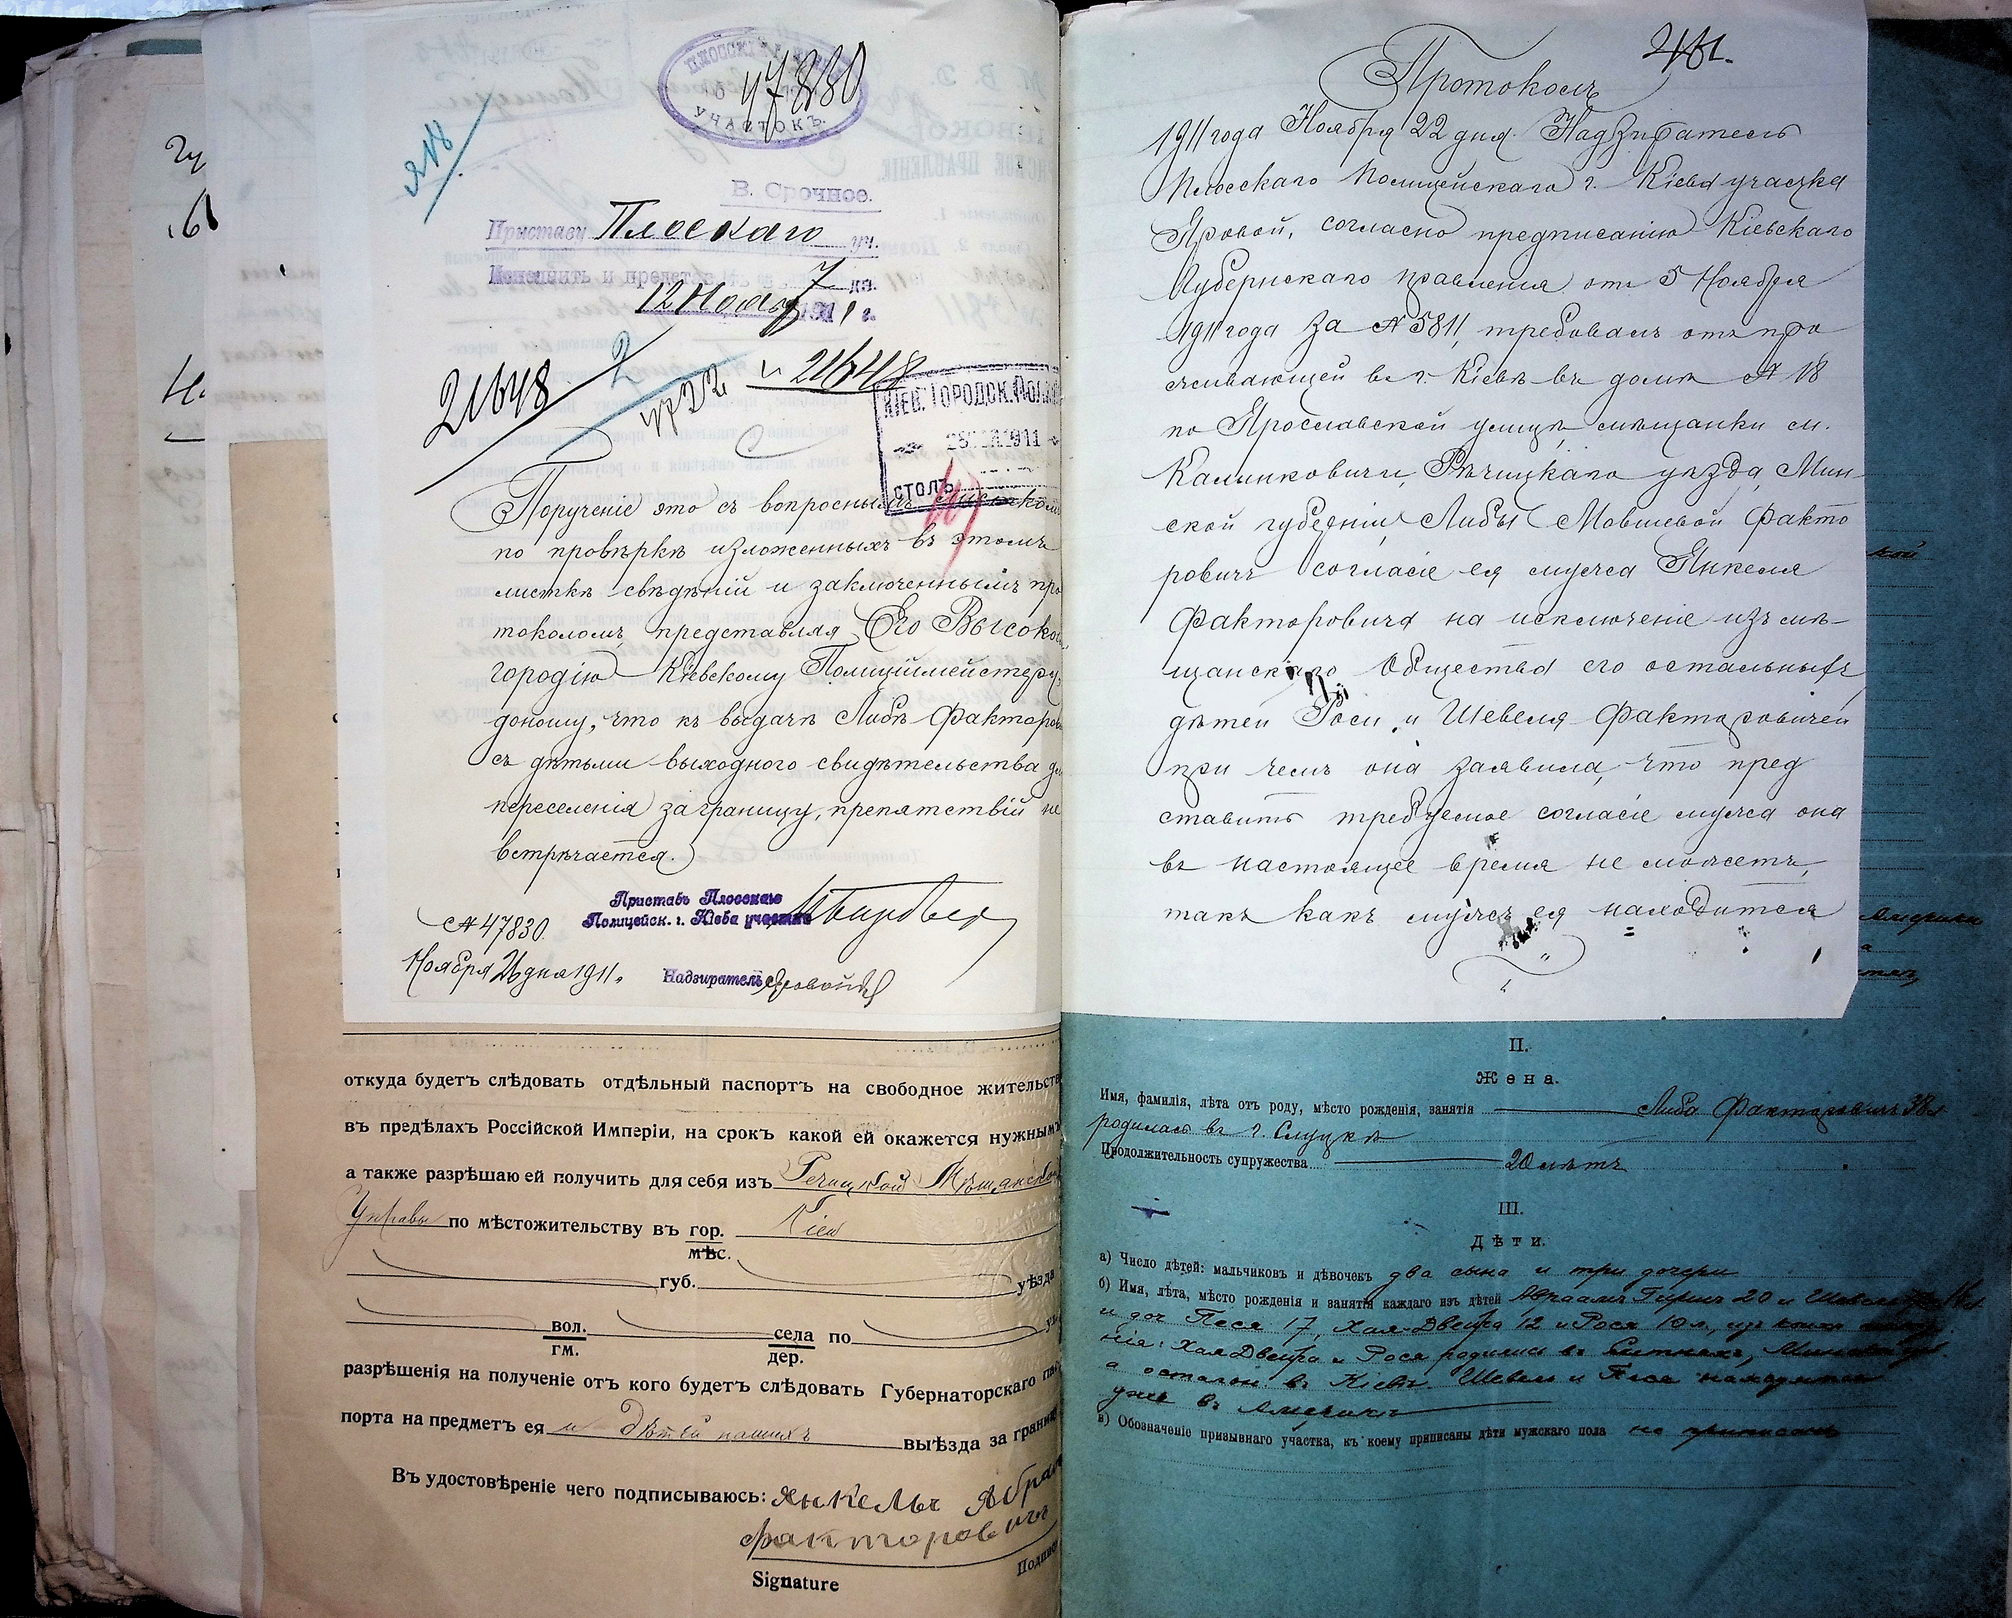 ПЛОССКІЙ
47830
УЧАСТОКЪ.
№ 18
В. Срочное.
Приставу Плоскаго уч.
Исполнить и предст. въ 7 дн.
12 Ноября 1911 г.
21648
2
4722
и 21648
КІЕВ. ГОРОДСК. ПОЛ
1911
СТОЛЪ
Порученіе это съ вопроснымъ листкомъ
по провѣркѣ изложенныхъ въ этомъ
листкѣ свѣдѣній и заключеннымъ про
токоломъ, представляя Его Высоко
городію Кіевскому Полиціймейстеру,
доношу, что къ выдачѣ Либѣ Факторов
съ дѣтьми выходного свидѣтельства д
переселенія заграницу, препятствій не
встрѣчается.
Приставъ Плосскаго
Полицейск. г. Кіева участка
№ 47830.
Ноября 26 дня 1911.
Надзиратель Яровой
откуда будетъ слѣдовать отдѣльный паспортъ на свободное жительств
въ предѣлахъ Россійской Имперіи, на срокъ какой ей окажется нужнымъ
а также разрѣшаю ей получить для себя изъ Речицкой Мѣщанской
Управы по мѣстожительству въ гор. Кіев
мѣс.
губ. уѣзда
вол. села по
гм. дер.
разрѣшенія на полученіе отъ кого будетъ слѣдовать Губернаторскаго пас
порта на предметъ ея и дѣтей нашихъ выѣзда за границ
Въ удостовѣреніе чего подписываюсь: Янкель Абрам
Факторовичъ
Подпис
Signature
281.
Протоколъ
1911 года Ноября 22 дня. Надзиратель
Плосскаго Полицейскаго г. Кіева участка
Яровой, согласно предписанію Кіевскаго
Губернскаго правленія отъ 5 Ноября
1911 года за № 5811, требовалъ отъ про
живающей въ г. Кіевѣ въ домѣ № 18
по Ярославской улицѣ, мѣщанки м.
Калинковичи, Рѣчицкаго уѣзда, Мин-
ской губерніи, Либы Мовшевой Факто
ровичъ согласіе ея мужа Янкеля
Факторовича на исключеніе изъ мѣ-
щанскаго общества его остальныхъ
дѣтей Роси и Шевеля Факторовичей
при чемъ она заявила, что пред
ставить требуемое согласіе мужа она
въ настоящее время не можетъ,
такъ какъ мужъ ея находится
кой
Америки
II.
Жена.
Имя, фамилія, лѣта отъ роду, мѣсто рожденія, занятія Либа Факторовичъ 38 л
родилась въ г. Слуцкѣ
Продолжительность супружества 20 лѣтъ
III.
Дѣти.
а) Число дѣтей: мальчиковъ и дѣвочекъ два сына и три дочери
б) Имя, лѣта, мѣсто рожденія и занятія каждаго изъ дѣтей Авраамъ Гиршъ 20 и Шевель
и доч Песя 17, Хая-Двейра 12 и Рося 10 л., изъ коихъ
Хая Двейра и Рося родились въ Минской губ.
а остальн. въ Кіевѣ. Шевель и Песя находятся
уже въ Америкѣ
в) Обозначеніе призывнаго участка, къ коему приписаны дѣти мужского пола не приписаны